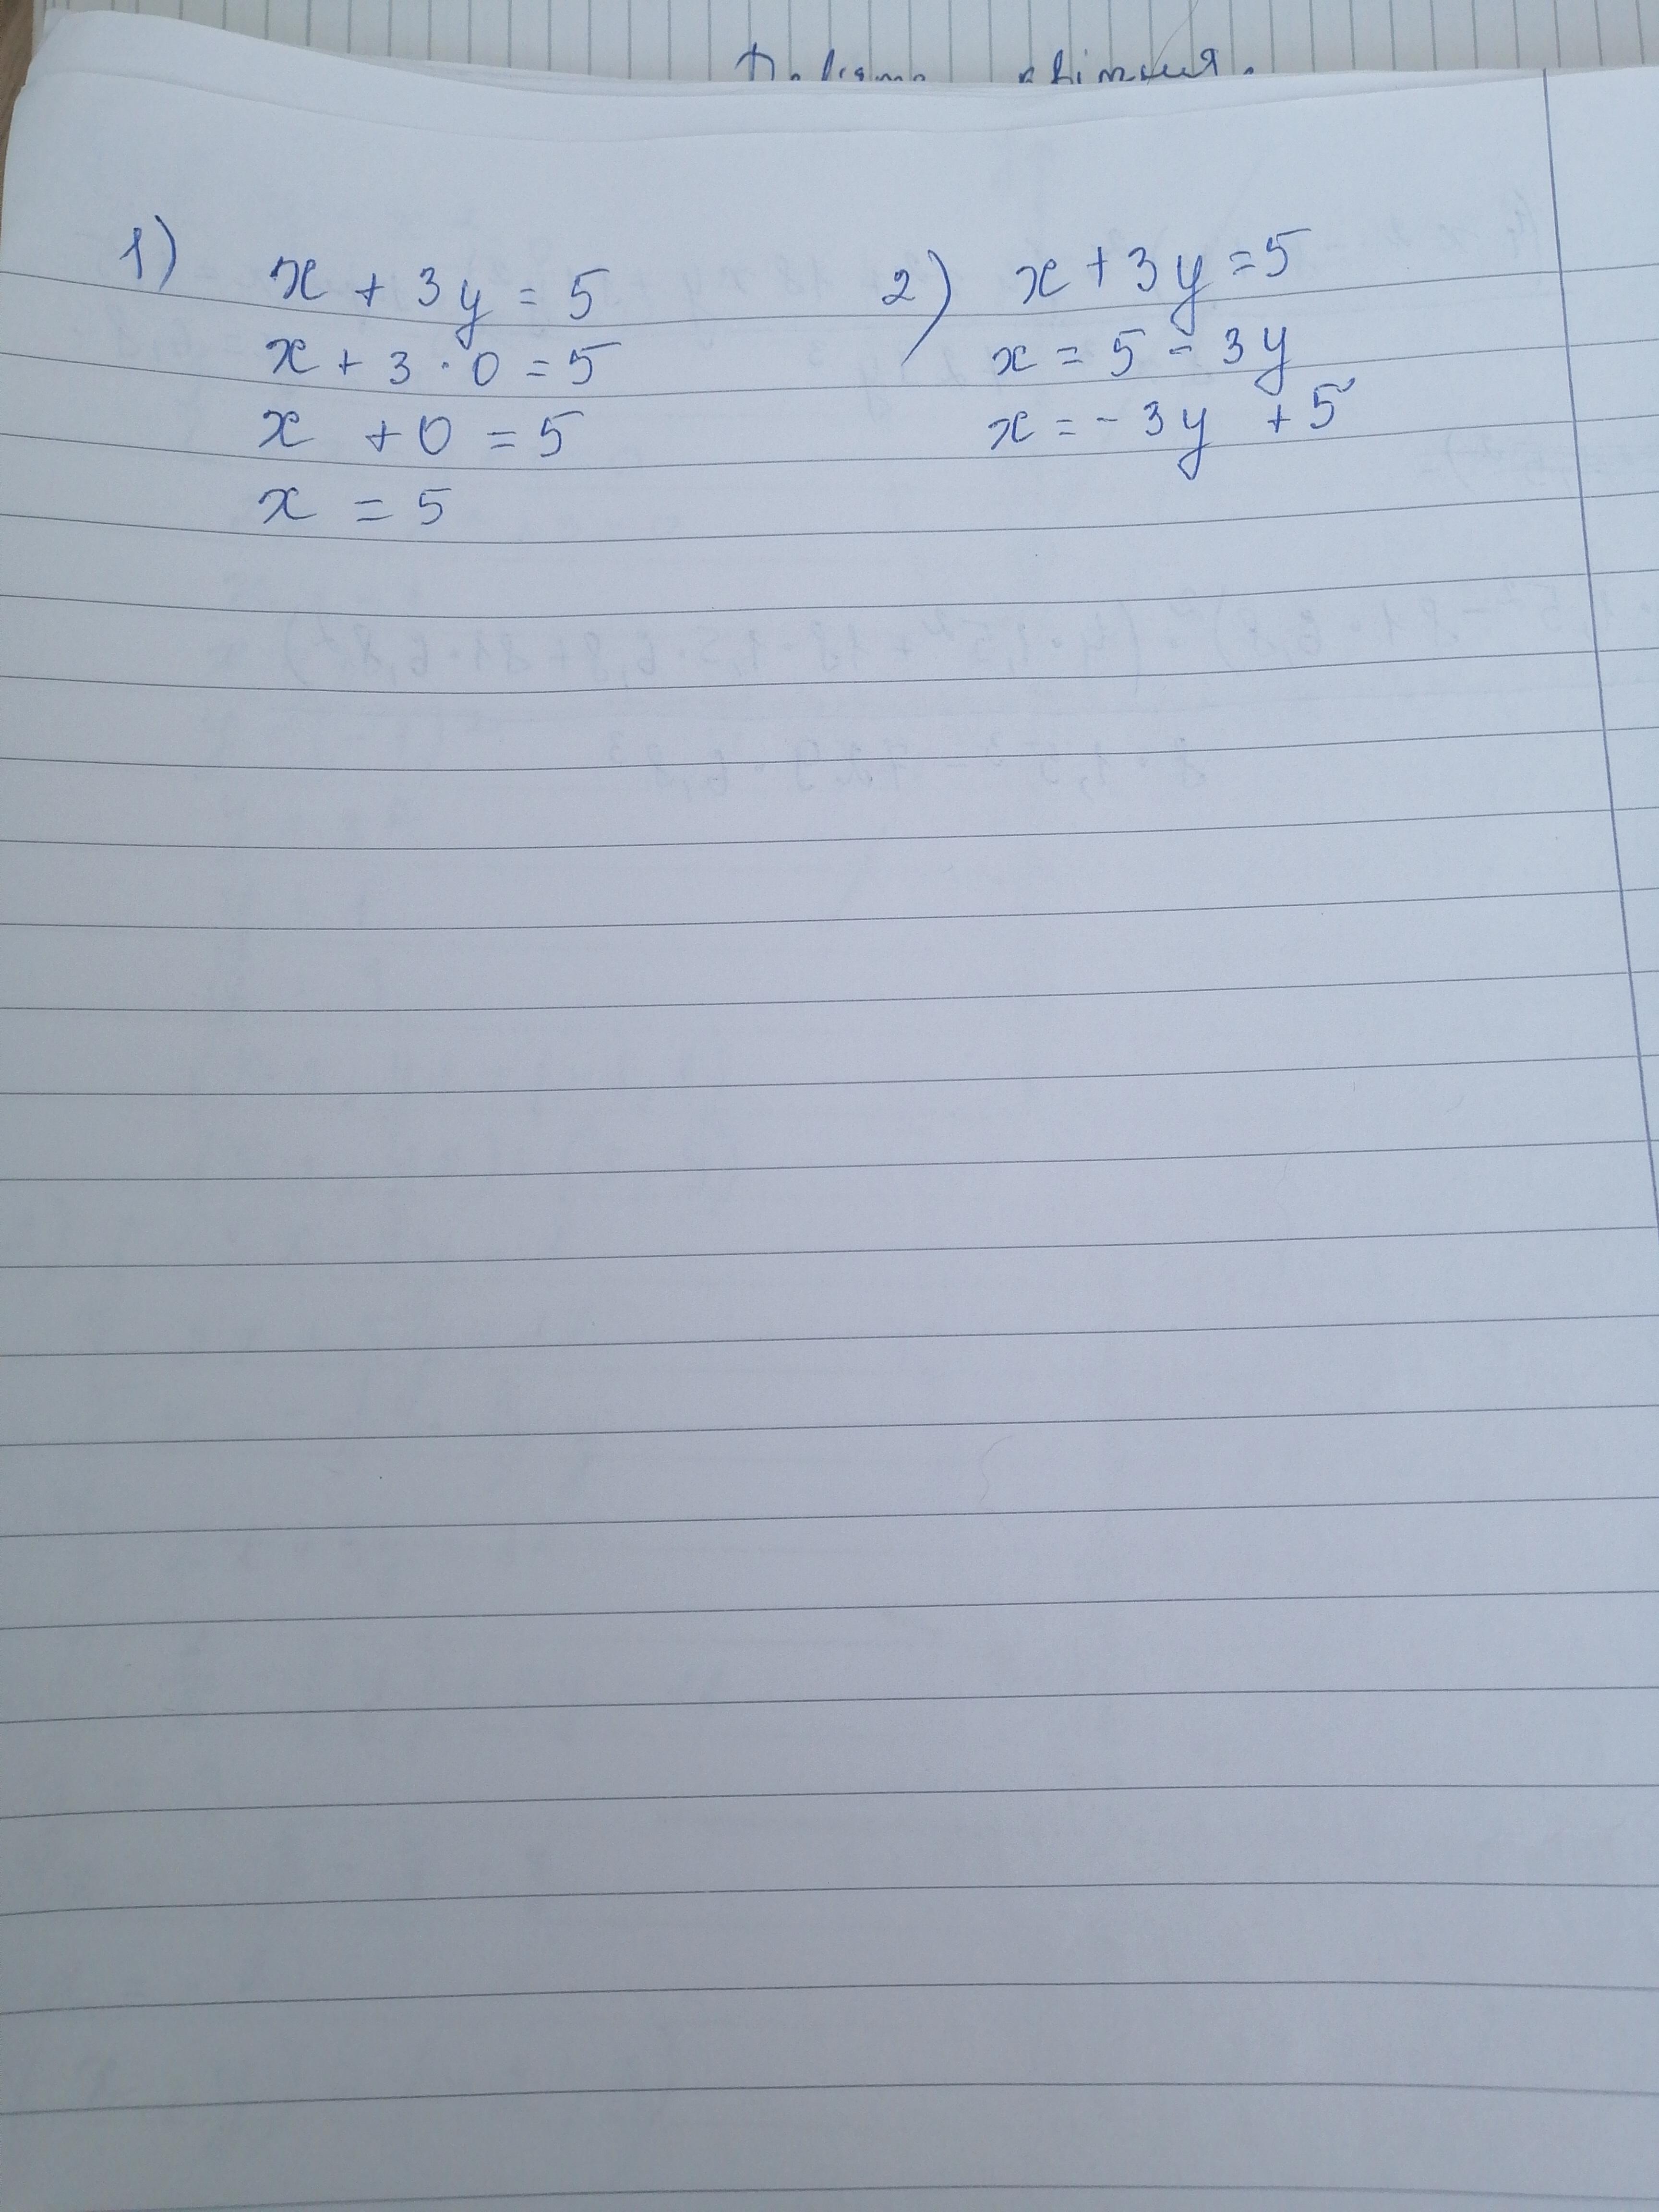 1) x + 3y = 5
x + 3 · 0 = 5
x + 0 = 5
x = 5
2) x + 3y = 5
x = 5 - 3y
x = - 3y + 5